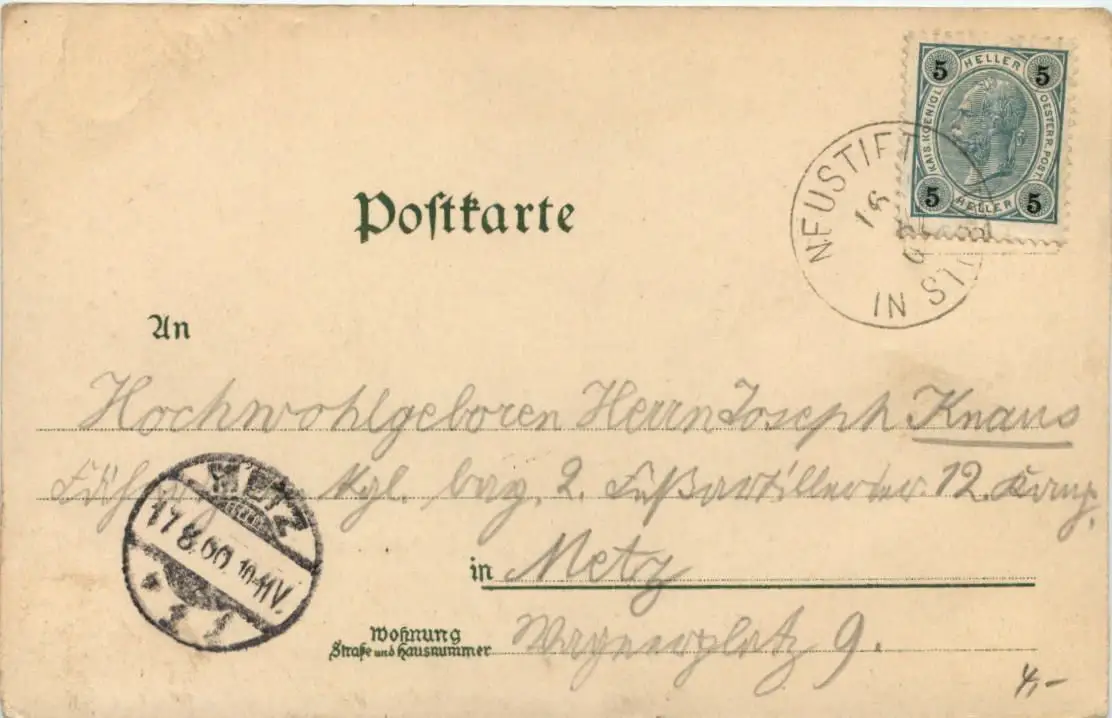 5 HELLER 5
KAIS. KOENIGL. OESTERR. POST.
5 HELLER 5
NEUSTIFT
IN
Postkarte
An
Hochwohlgeboren Herrn Joseph Knaus
kgl. bay. 2. Fußartillerie 12. Komp.
METZ
17.8.00. 10-11V.
* 1
in Metz
Wohnung
Straße und Hausnummer
Wagnerplatz 9.
4,-